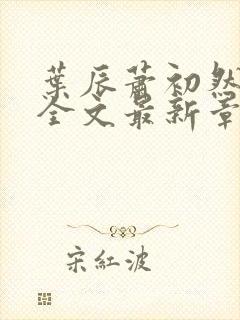 葉辰蕭初然
全文最新章
宋紅波